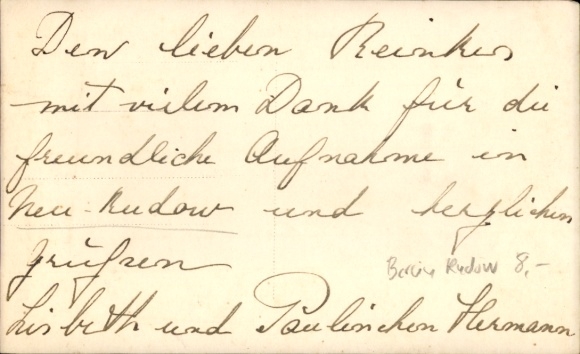 Den lieben Reinkes
mit vielem Dank für die
freundliche Aufnahme in
Neu-Rudow und herzlichen
Grüßen
Berlin Rudow 8,-
Lisbeth und Paulinchen Hermann